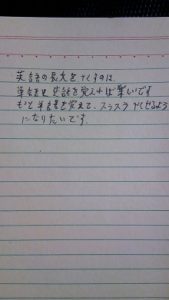 英語の長文をてくすのは、
単語と 英語を覚えれば 楽いです
もっと単語を覚えて、スラスラ てしせるよう
になりたいです。